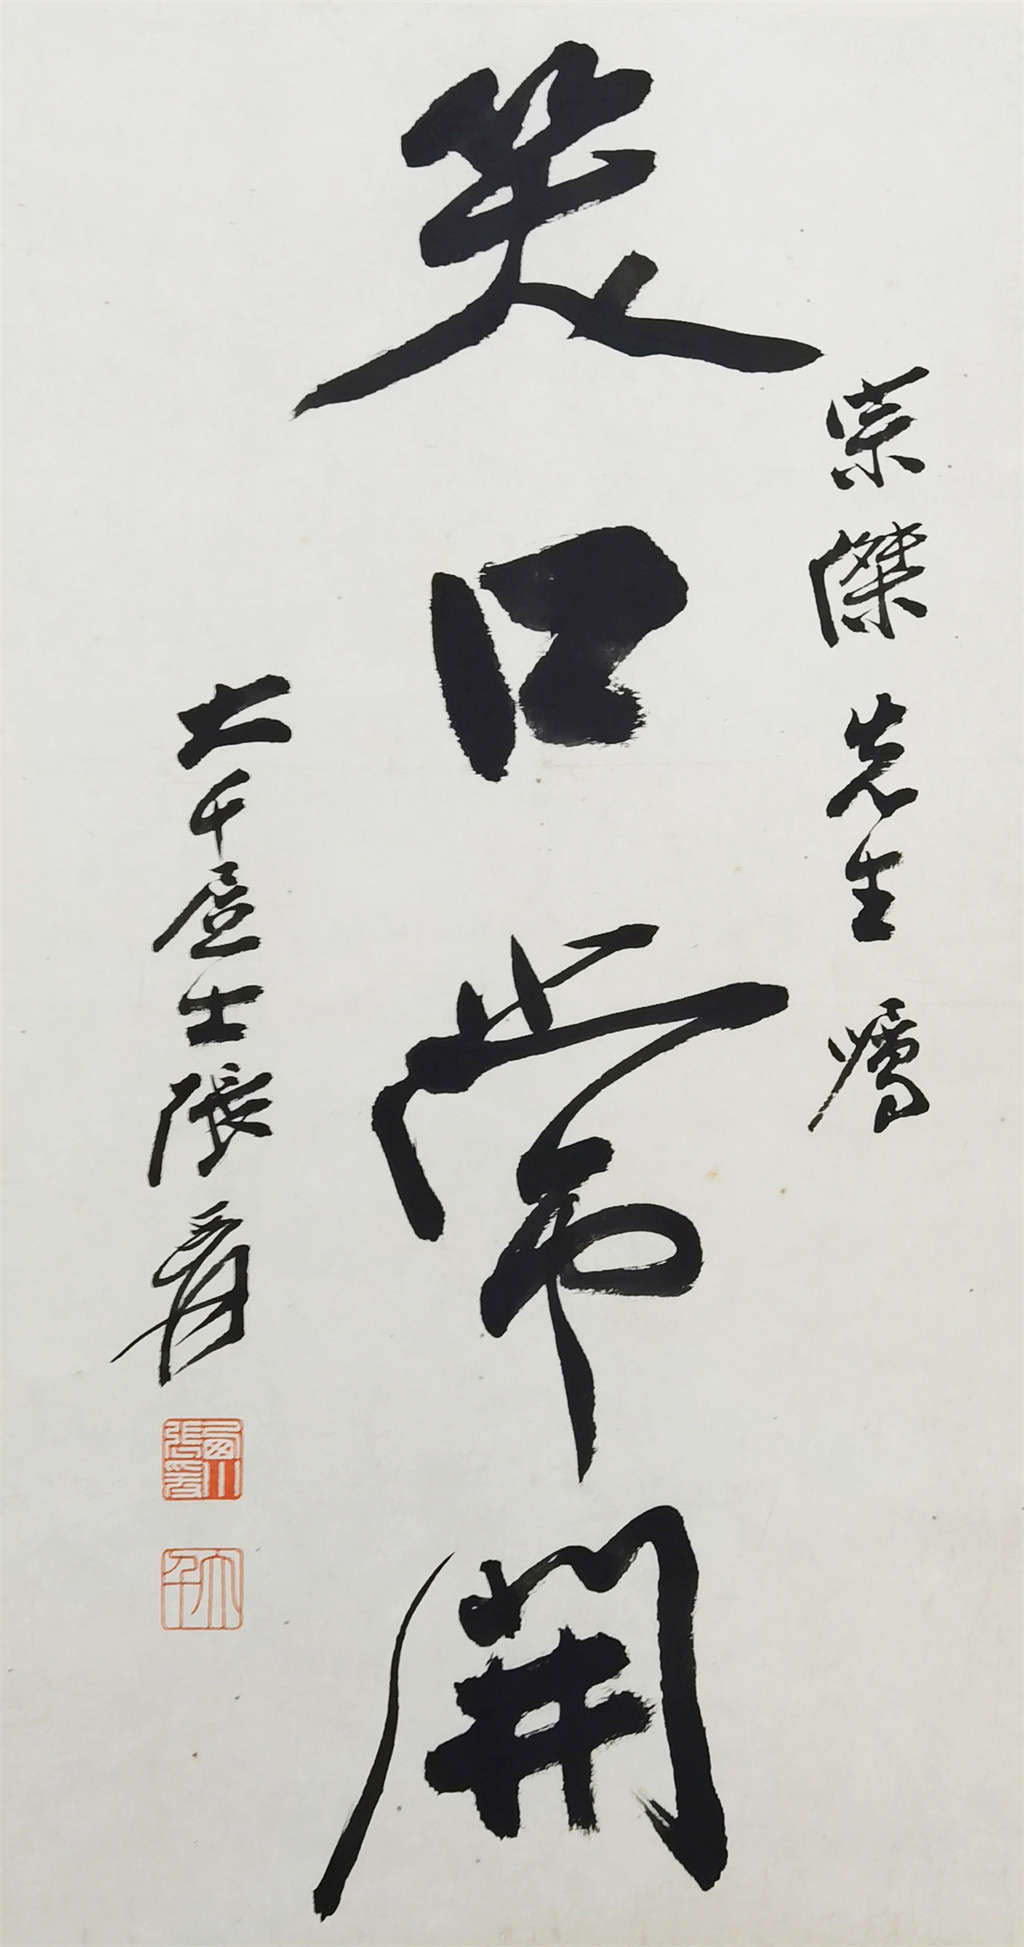 宗傑先生囑
笑口常開
大千居士張爰
蜀川張爰
大千